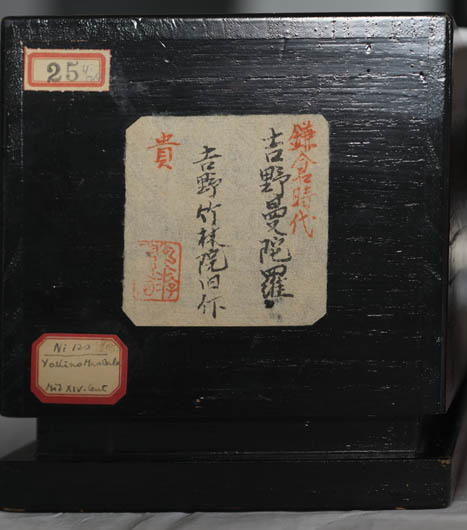 25
鎌倉時代
吉野曼陀羅
吉野竹林院旧作
貴
Ni 120
Yoshino Mandala
Mid XIV. Cent